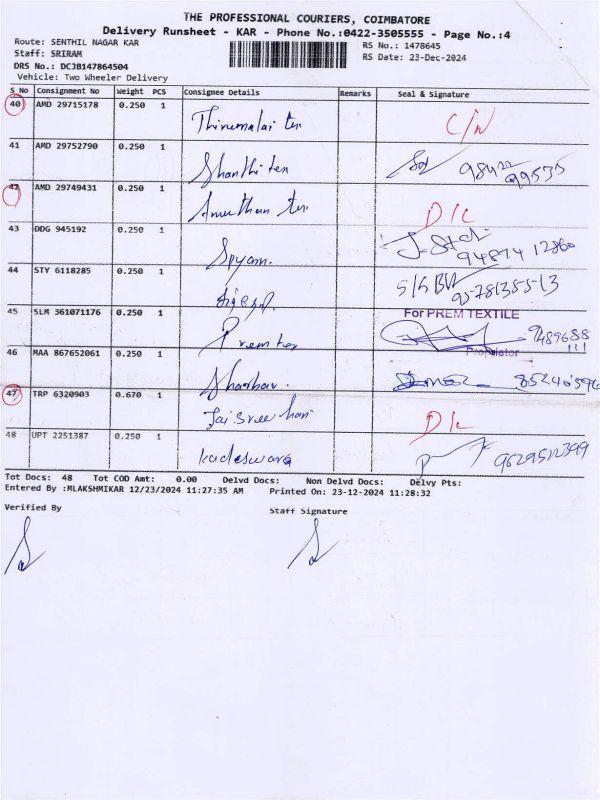 THE PROFESSIONAL COURIERS, COIMBATORE
Delivery Runsheet - KAR - Phone No.:0422-3505555 - Page No.:4
Route: SENTHIL NAGAR KAR
Staff: SRIRAM
DRS No.: DCJB147864504
Vehicle: Two Wheeler Delivery
RS No.: 1478645
RS Date: 23-Dec-2024
S No Consignment No Weight PCS Consignee Details Remarks Seal & Signature
40 AMD 29715178 0.250 1 Thirumalai tex C/N
41 AMD 29752790 0.250 1 Shanthi tex 98422 99535
42 AMD 29749431 0.250 1 Amuthan tex D/L
43 DDG 945192 0.250 1 94874 12860
44 STY 6118285 0.250 1
45 SLM 361071176 0.250 1 Prem tex For PREM TEXTILE
Proprietor
46 MAA 867652061 0.250 1
47 TRP 6320903 0.670 1 Jai Sree Hari D/L
48 UPT 2251387 0.250 1 kadeswara
Tot Docs: 48 Tot COD Amt: 0.00 Delvd Docs: Non Delvd Docs: Delvy Pts:
Entered By :MLAKSHMIKAR 12/23/2024 11:27:35 AM Printed On: 23-12-2024 11:28:32
Verified By Staff Signature